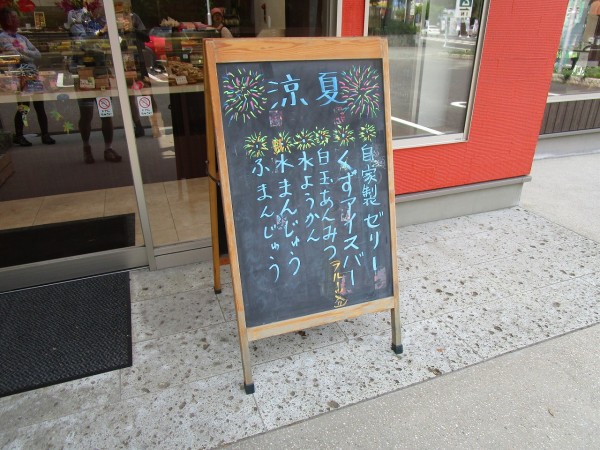 涼夏
自家製ゼリー
くずアイスバー
白玉あんみつフルーツ入
水ようかん
水まんじゅう
ふまんじゅう